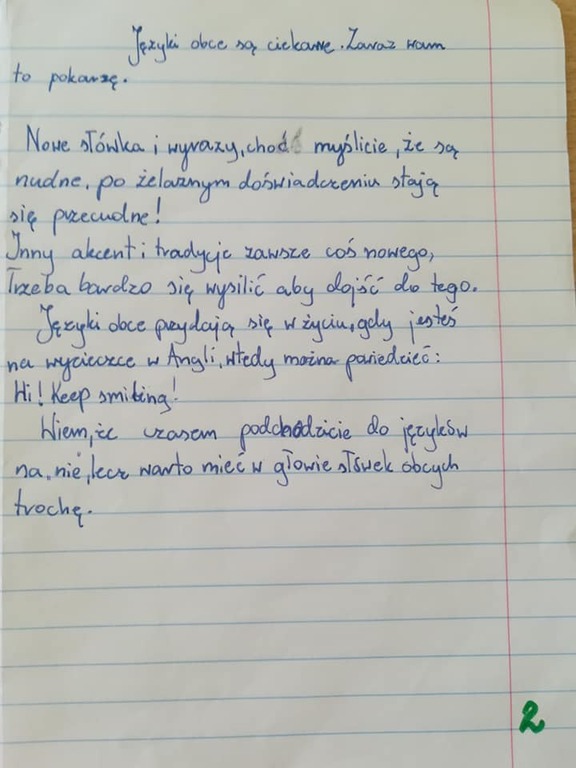 Języki obce są ciekawe. Zaraz wam
to pokarzę.
Nowe słówka i wyrazy, choć myślicie, że są
nudne, po żelaznym doświadczeniu stają
się przecudne!
Inny akcent i tradycje zawsze coś nowego,
Trzeba bardzo się wysilić aby dojść do tego.
Języki obce przydają się w życiu, gdy jesteś
na wycieczce w Angli, wtedy można powiedzieć:
Hi! Keep smiling!
Wiem, że czasem podchodzicie do języków
na "nie", lecz warto mieć w głowie słówek obcych
trochę.
2